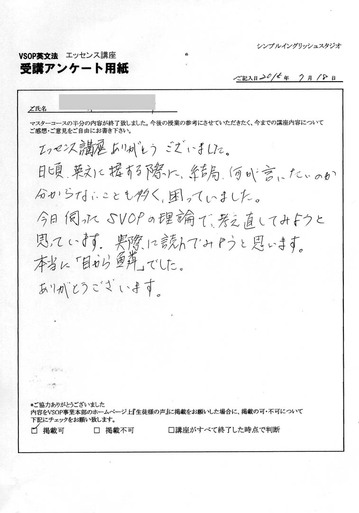 シンプルイングリッシュスタジオ
VSOP英文法 エッセンス講座
受講アンケート用紙
ご記入日 2016年 7月18日
ご氏名
マスターコースの不分の内容が終了致しました。今後の授業の参考にさせていただきたく、今までの講座内容について
ご感想・ご意見をご自由にお書き下さい。
エッセンス講座ありがとうございました。
日頃、英文に接する際に、結局、何が言いたいのか
分からないことも多く、困っていました。
今日伺ったSVOPの理論で、考え直してみようと
思っています。実際に読んでみようと思います。
本当に「目から鱗」でした。
ありがとうございます。
*ご協力ありがとうございました
内容をVSOP事業本部のホームページ上『生徒様の声』に掲載をお願いした場合に、掲載の可・不可について
下記にチェックをお願い致します。
☑ 掲載可 □ 掲載不可 □講座がすべて終了した時点で判断